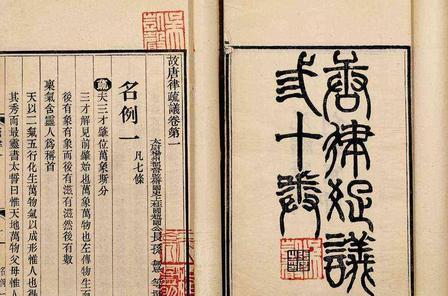 唐律疏議
十卷
故唐律疏議卷第一
太尉揚州都督監修國史上柱國趙國公長孫無忌等
名例一 凡七條
疏夫三才肇位萬象斯分
三才解見前肇始也萬象萬物也左傳物生而
後有象有象而後有滋有滋然後有數
稟氣含靈人爲稱首
天以二氣五行化生萬物氣以成形惟人也得
其秀而最靈書太誓曰惟天地萬物父母惟人